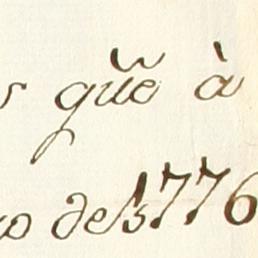 que à
de 1776